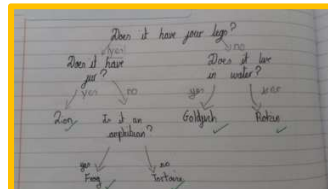 Does it have four legs?
yes no
Does it have Does it live
fur? in water?
yes no yes no
Lion Is it an Goldfish
amphibian?
yes no
Frog Tortoise